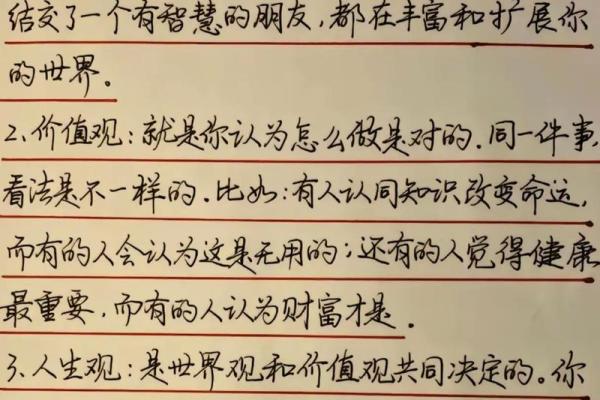 结交了一个有智慧的朋友,都在丰富和扩展你
的世界。
2、价值观:就是你认为怎么做是对的.同一件事,
看法是不一样的.比如:有人认同知识改变命运,
而有的人会认为这是无用的;还有的人觉得健康
最重要,而有的人认为财富才是.
3、人生观:是世界观和价值观共同决定的。你